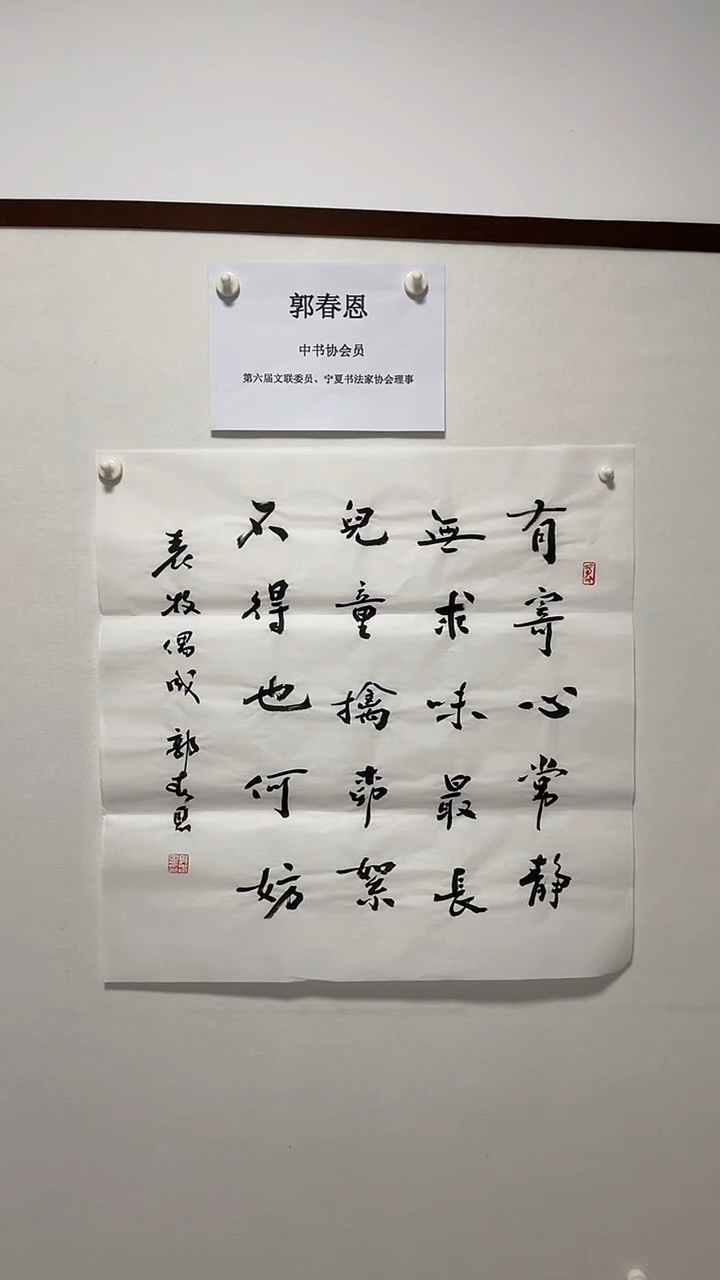 郭春恩
中书协会员
第六届文联委员、宁夏书法家协会理事
有寄心常静
無求味最長
兒童擒柳絮
不得也何妨
袁枚偶成 郭春恩